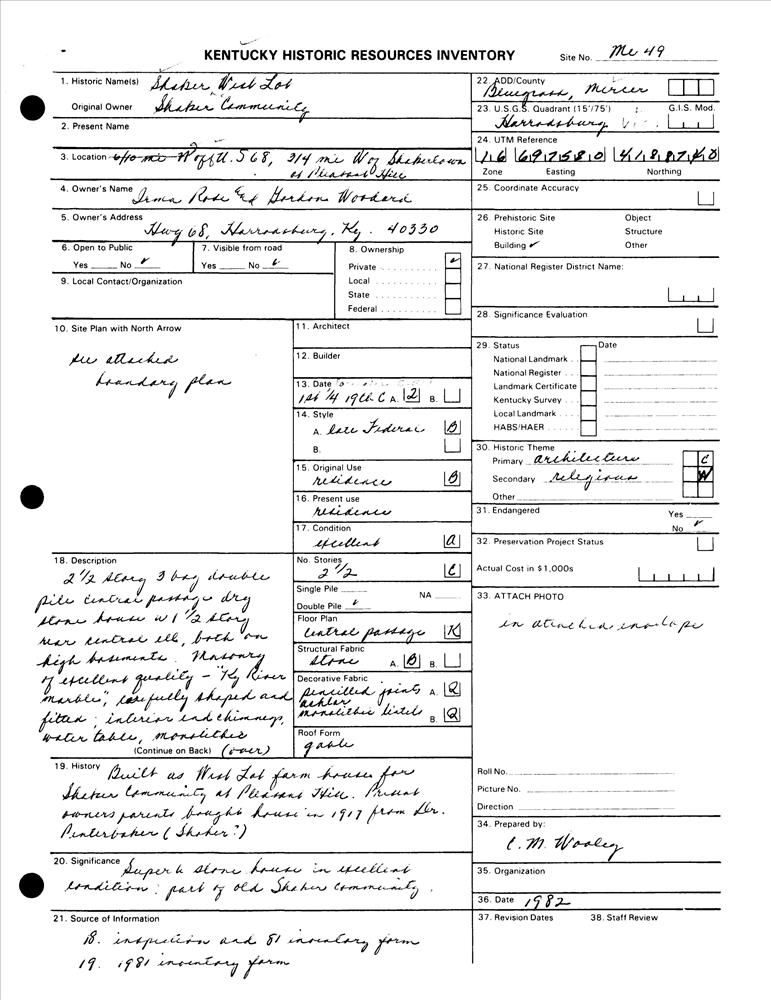 KENTUCKY HISTORIC RESOURCES INVENTORY
Site No. Me 49
1. Historic Name(s) Shaker West Lot
Original Owner Shaker Community
2. Present Name
3. Location 6/10 mi W off U.S 68, 3/4 mi W of Shakertown
at Pleasant Hill
4. Owner's Name Irma Rose and Gordon Woodard
5. Owner's Address
Hwy 68, Harrodsburg, Ky. 40330
6. Open to Public
Yes No ✓
7. Visible from road
Yes No ✓
8. Ownership
Private ✓
Local
State
Federal
9. Local Contact/Organization
10. Site Plan with North Arrow
see attached
boundary plan
11. Architect
12. Builder
13. Date
1st 1/4 19th C A. 2 B.
14. Style
A. late Federal B
B.
15. Original Use
residence B
16. Present use
residence
17. Condition
excellent A
18. Description
2 1/2 story 3 bay double
pile central passage dry
stone house w 1 1/2 story
rear central ell, both on
high basements. Masonry
of excellent quality - "Ky River
marble", carefully shaped and
fitted; interior end chimneys,
water table, monolithic
(Continue on Back) (over)
No. Stories
2 1/2 C
Single Pile NA
Double Pile ✓
Floor Plan
central passage K
Structural Fabric
stone A. B B.
Decorative Fabric
pencilled joints A. Q
ashlar
monolithic lintel B. Q
Roof Form
gable
19. History Built as West Lot farm house for
Shaker Community at Pleasant Hill. Present
owners parents bought house in 1917 from Dr.
Penterbaker (Shaker?)
20. Significance Superb stone house in excellent
condition; part of old Shaker Community.
21. Source of Information
18. inspection and 81 inventory form
19. 1981 inventory form
22. ADD/County
Bluegrass, Mercer
23. U.S.G.S. Quadrant (15'/75') G.I.S. Mod.
Harrodsburg
24. UTM Reference
16 697580 4188740
Zone Easting Northing
25. Coordinate Accuracy
26. Prehistoric Site Object
Historic Site Structure
Building ✓ Other
27. National Register District Name:
28. Significance Evaluation
29. Status Date
National Landmark
National Register
Landmark Certificate
Kentucky Survey
Local Landmark
HABS/HAER
30. Historic Theme
Primary architecture C
Secondary religious W
Other
31. Endangered Yes
No ✓
32. Preservation Project Status
Actual Cost in $1,000s
33. ATTACH PHOTO
in attached envelope
Roll No.
Picture No.
Direction
34. Prepared by:
C. M. Wooley
35. Organization
36. Date 1982
37. Revision Dates 38. Staff Review